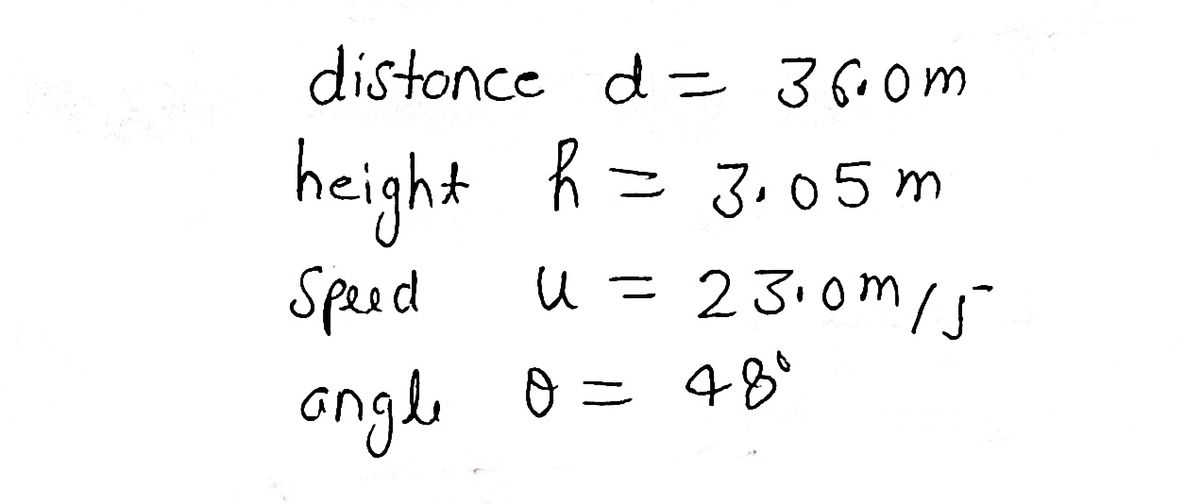 distance d = 36.0m
height h = 3.05 m
Speed u = 23.0m/s
angle θ = 48°